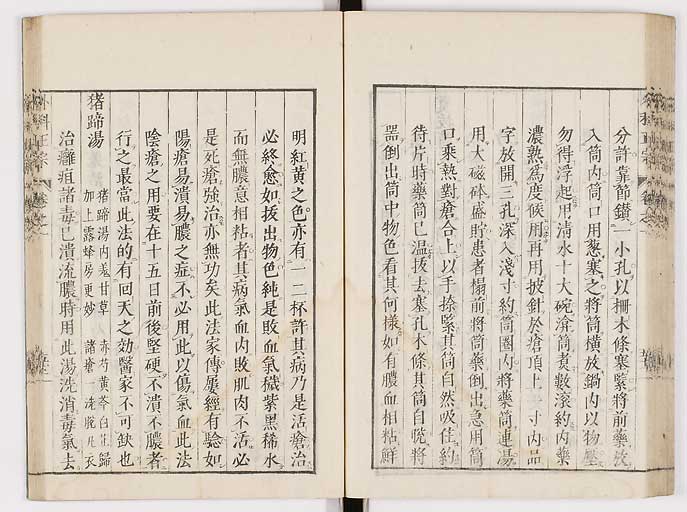 分許靠節鑽一小孔以柵木條塞緊將前藥放
入筒內筒口用葱塞之將筒橫放鍋內以物壓
勿得浮起用清水十大碗渰筒煑數滾約內藥
濃熟爲度候用再用披針於瘡頂上一寸內品
字放開三孔深入淺寸約筒圈內將藥筒連湯
用大磁鉢盛貯患者榻前將筒藥倒出急用筒
口乘熱對瘡合上以手捺緊其筒自然吸住約
待片時藥筒已溫拔去塞孔木條其筒自脫將
器倒出筒中物色看其何樣如有膿血相粘鮮
明紅黃之色亦有一二杯許其病乃是活瘡治
必終愈如拔出物色純是敗血氣穢紫黑稀水
而無膿意相粘者其病氣血內敗肌肉不活必
是死瘡強治亦無功矣此法家傳屢經有驗如
陽瘡易潰易膿之症不必用此以傷氣血此法
陰瘡之用要在十五日前後堅硬不潰不膿者
行之最當此法的有回天之効醫家不可缺也
猪蹄湯
猪蹄湯內羗甘草 赤芍黃芩白芷歸
加上露蜂房更妙 諸瘡一洗脫凡衣
治癰疽諸毒已潰流膿時用此湯洗消毒氣去
外科正宗